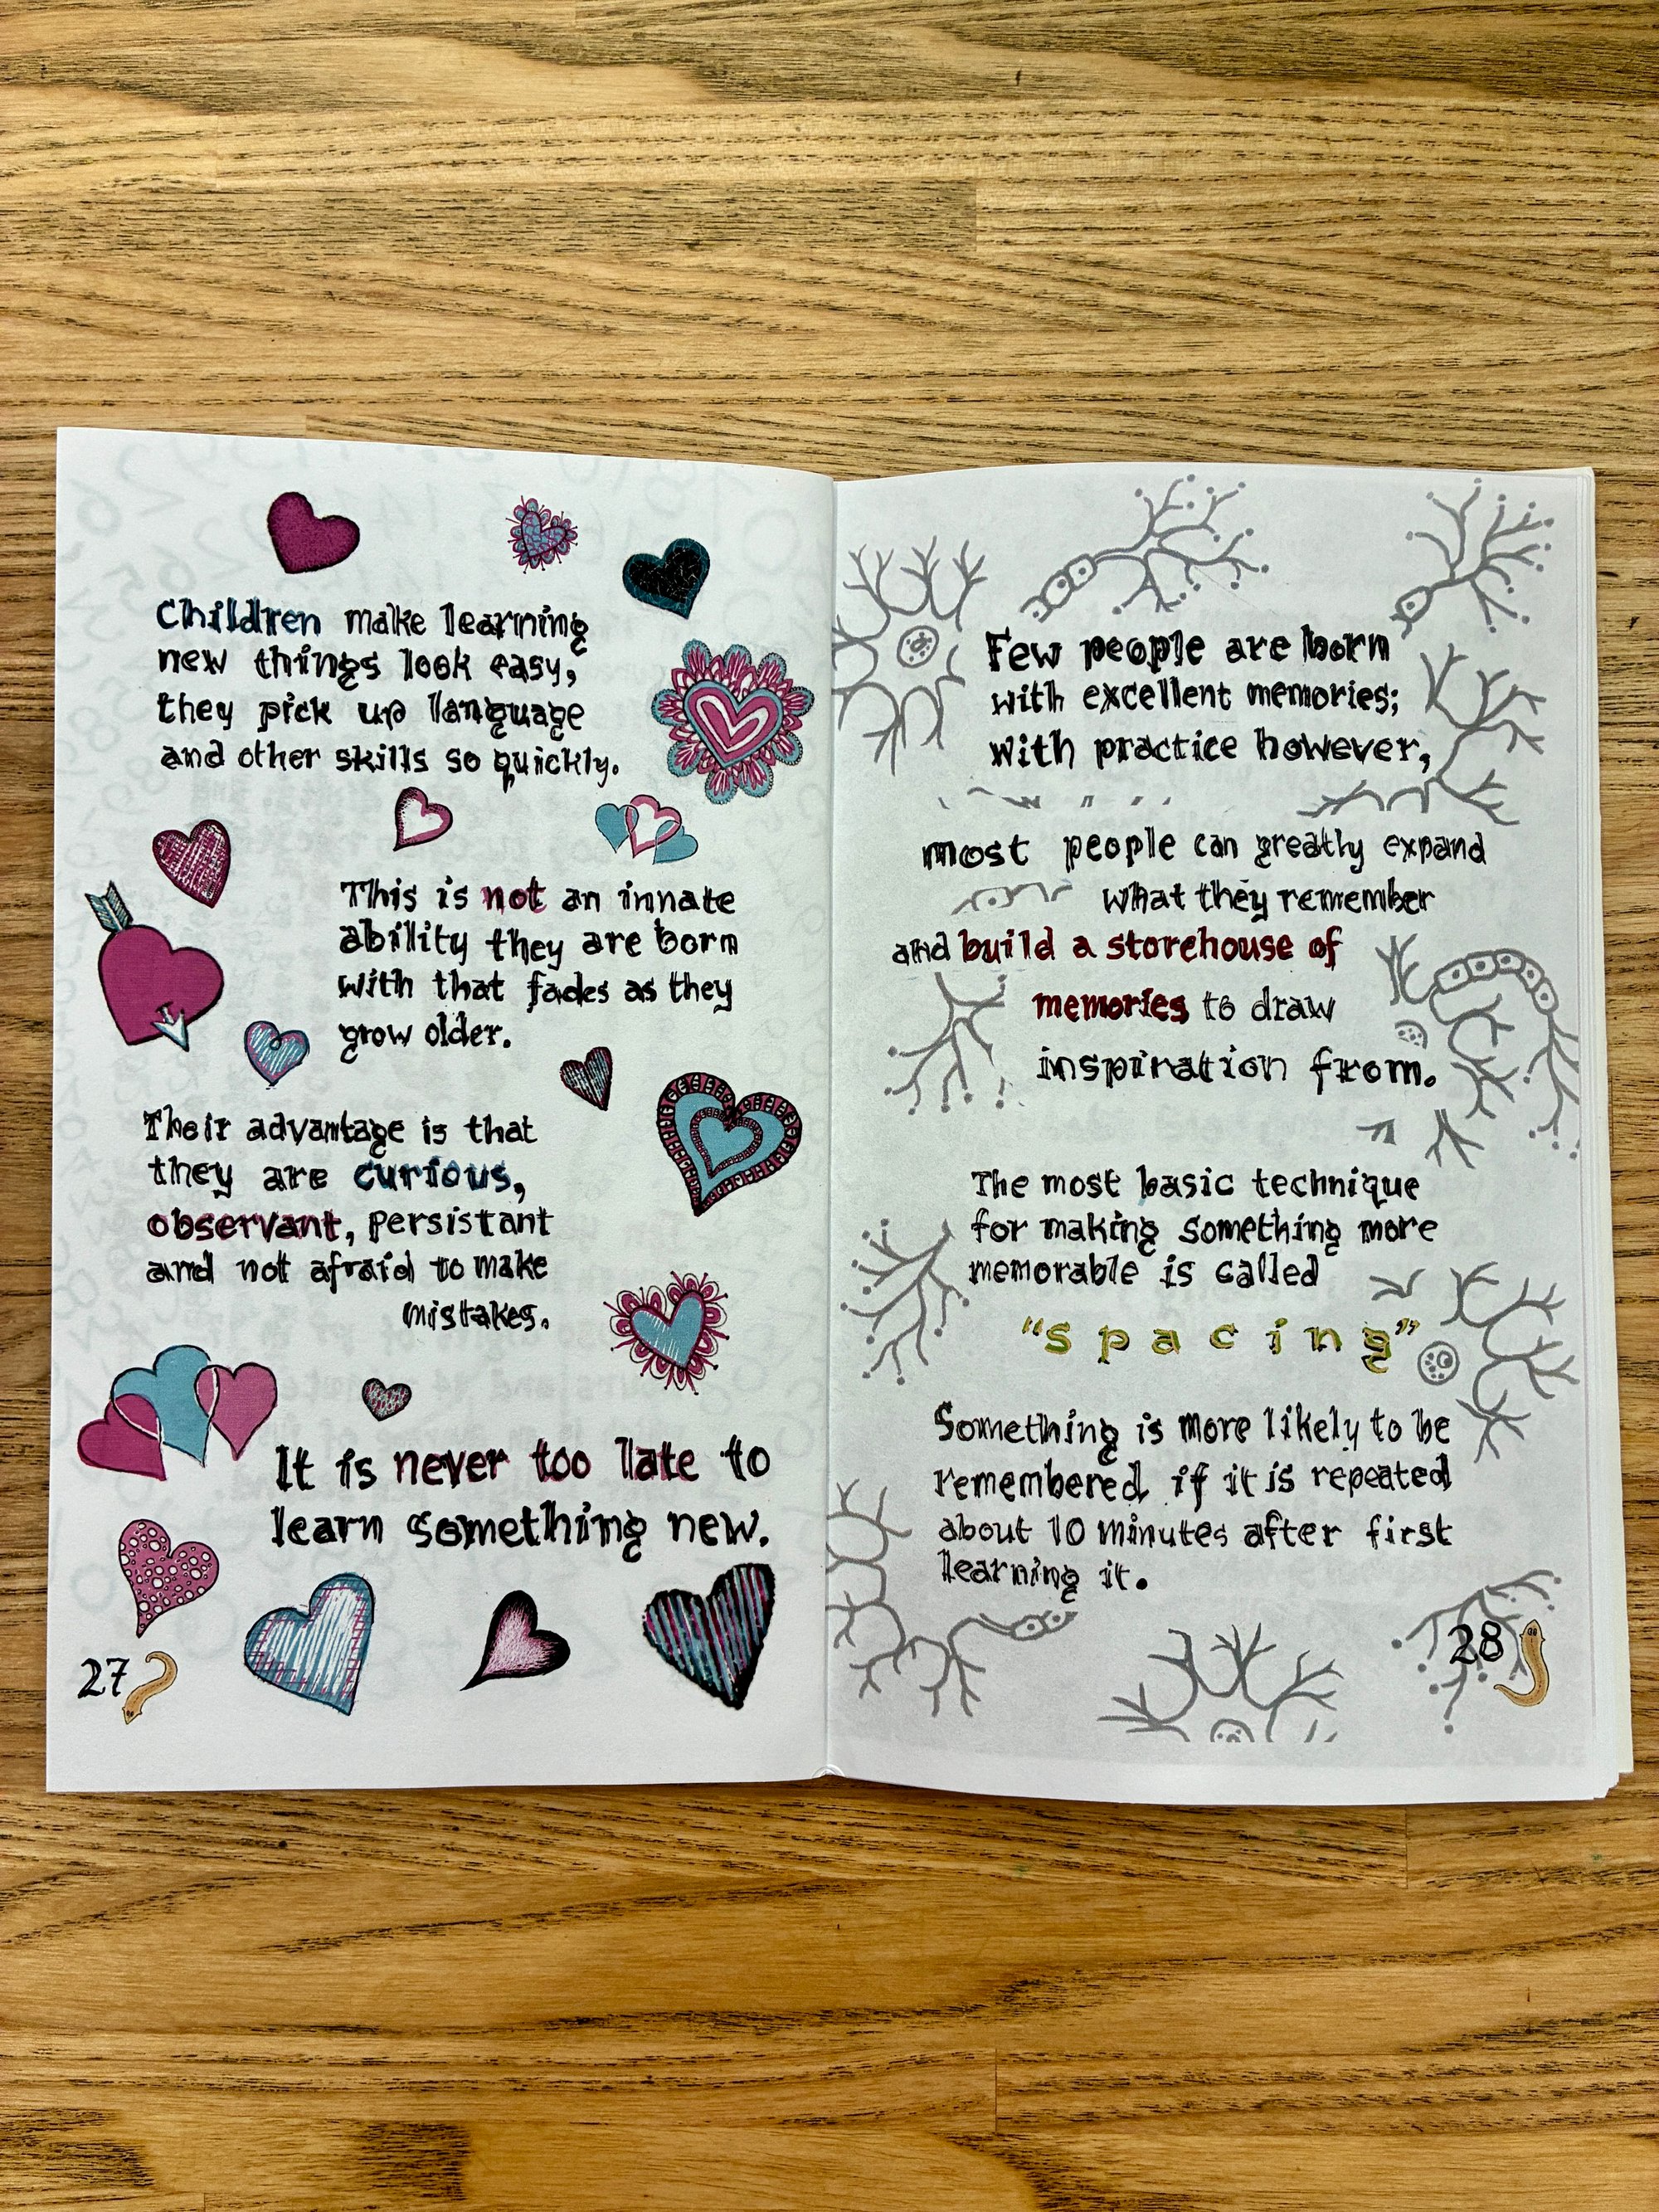 Children make learning
new things look easy,
they pick up language
and other skills so quickly.
This is not an innate
ability they are born
with that fades as they
grow older.
Their advantage is that
they are curious,
observant, persistant
and not afraid to make
mistakes.
It is never too late to
learn something new.
27
Few people are born
with excellent memories;
with practice however,
most people can greatly expand
what they remember
and build a storehouse of
memories to draw
inspiration from.
The most basic technique
for making something more
memorable is called
"spacing"
Something is more likely to be
remembered if it is repeated
about 10 minutes after first
learning it.
28